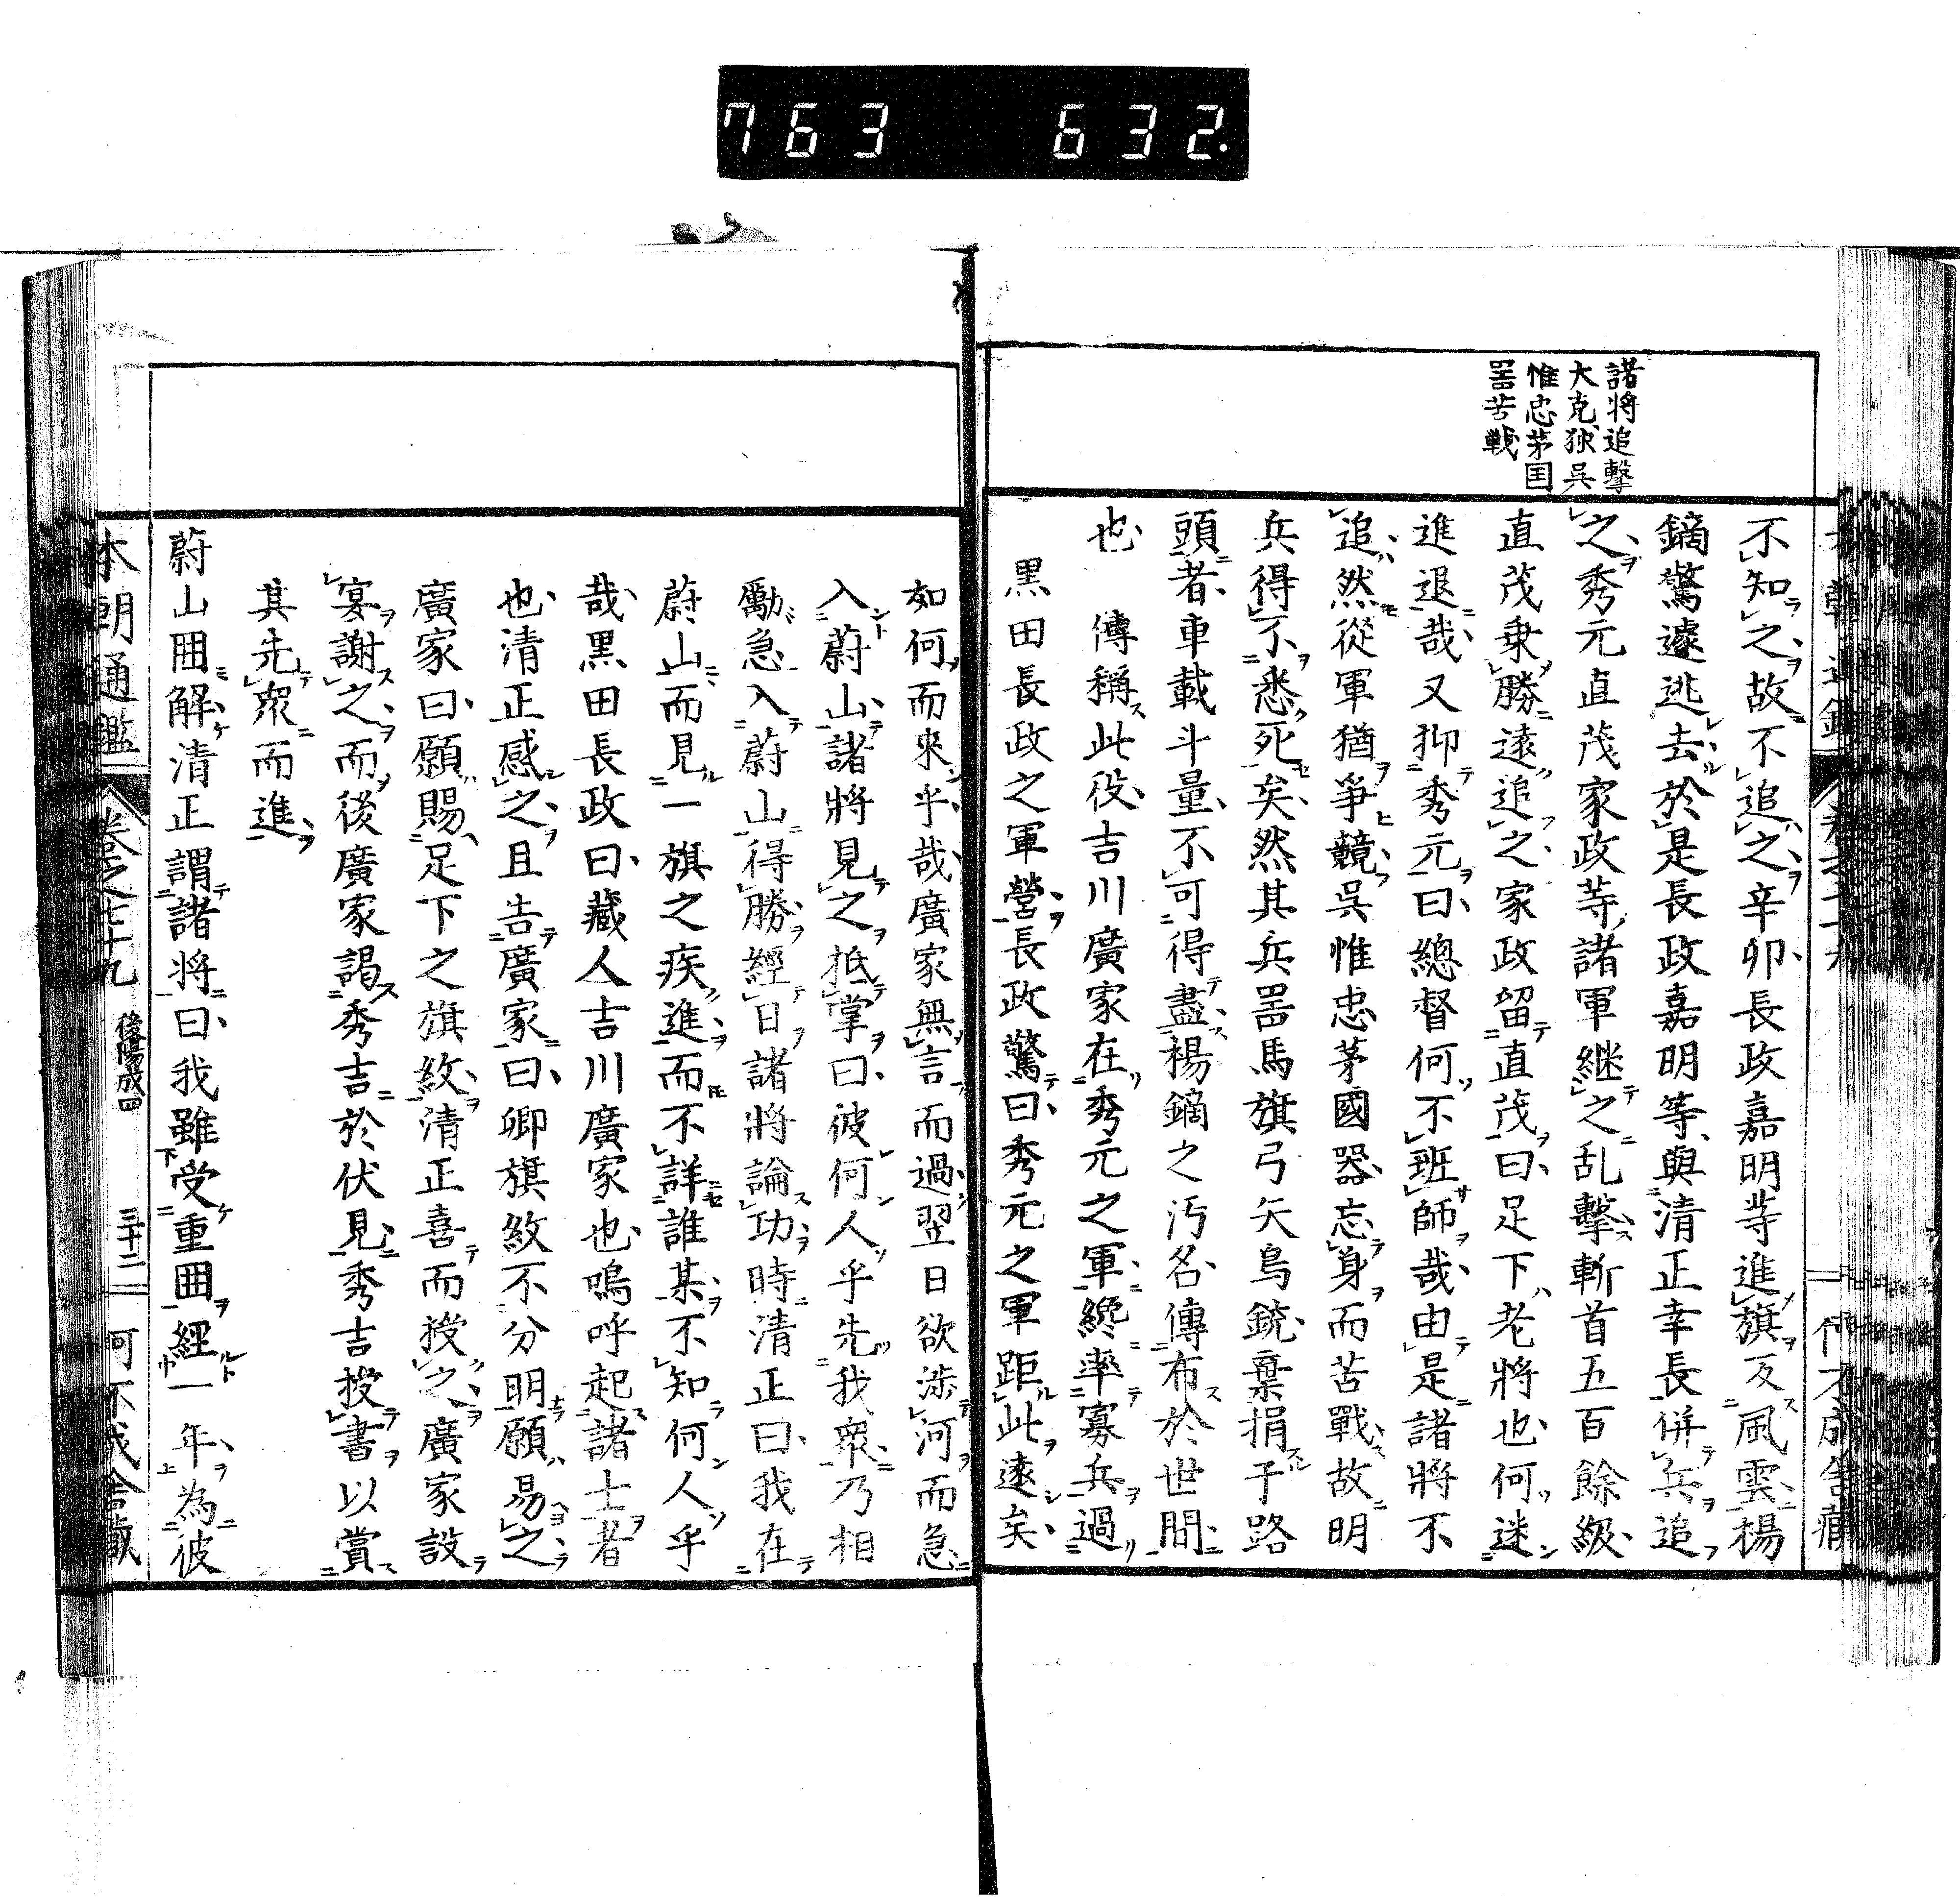 763 632.
諸將追擊
大克獨吳
惟忠茅国
噐苦戰
不知之故不追之辛卯長政嘉明等進旗反風雲楊
鏑驚遽逃去於是長政嘉明等與清正幸長併兵追
之秀元直茂家政等諸軍継之乱擊斬首五百餘級
直茂乗勝遠追之家政留直茂曰足下老將也何迷
進退哉又抑秀元曰總督何不班師哉由是諸將不
追然從軍猶爭競吳惟忠茅國器忘身而苦戰故明
兵得不悉死矣然其兵噐馬旗弓矢鳥銃棄捐于路
頭者車載斗量不可得盡楊鏑之汚名傳布於世間
也 傳稱此役吉川廣家在秀元之軍纔率寡兵過
黒田長政之軍營長政驚曰秀元之軍距此遠矣
如何而來乎哉廣家無言而過翌日欲渉河而急
入蔚山諸將見之抵掌曰彼何人乎先我衆乃相
勵急入蔚山得勝經日諸將論功時清正曰我在
蔚山而見一旗之疾進而不詳誰某不知何人乎
哉黒田長政曰藏人吉川廣家也嗚呼起諸士者
也清正感之且告廣家曰卿旗紋不分明願易之
廣家曰願賜足下之旗紋清正喜而授之廣家設
宴謝之而後廣家謁秀吉於伏見秀吉授書以賞
其先衆而進
蔚山囲解清正謂諸將曰我雖受重囲經一年為彼
本朝通鑑 卷之七十九 後陽成四 三十二 何不成舎藏